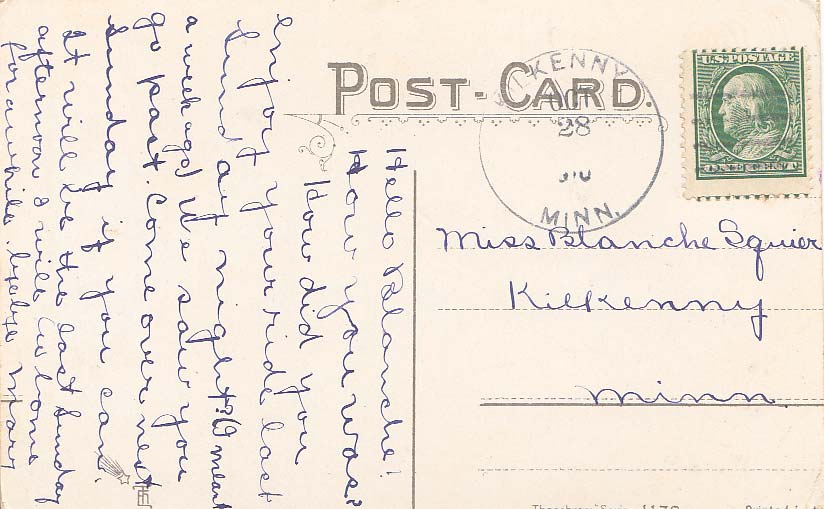 POST-CARD.
KILKENNY
OCT
28
MINN.
U.S. POSTAGE
ONE CENT
Miss Blanche Squier
Kilkenny
Minn.
Hello Blanche!
How you was?
How did you
enjoy your ride last
Sunday night? (I mean
a week ago) We saw you
go past. Come over next
Sunday if you can.
It will be the last Sunday
afternoon I will be home
for awhile.
Mary
1170
Printed in